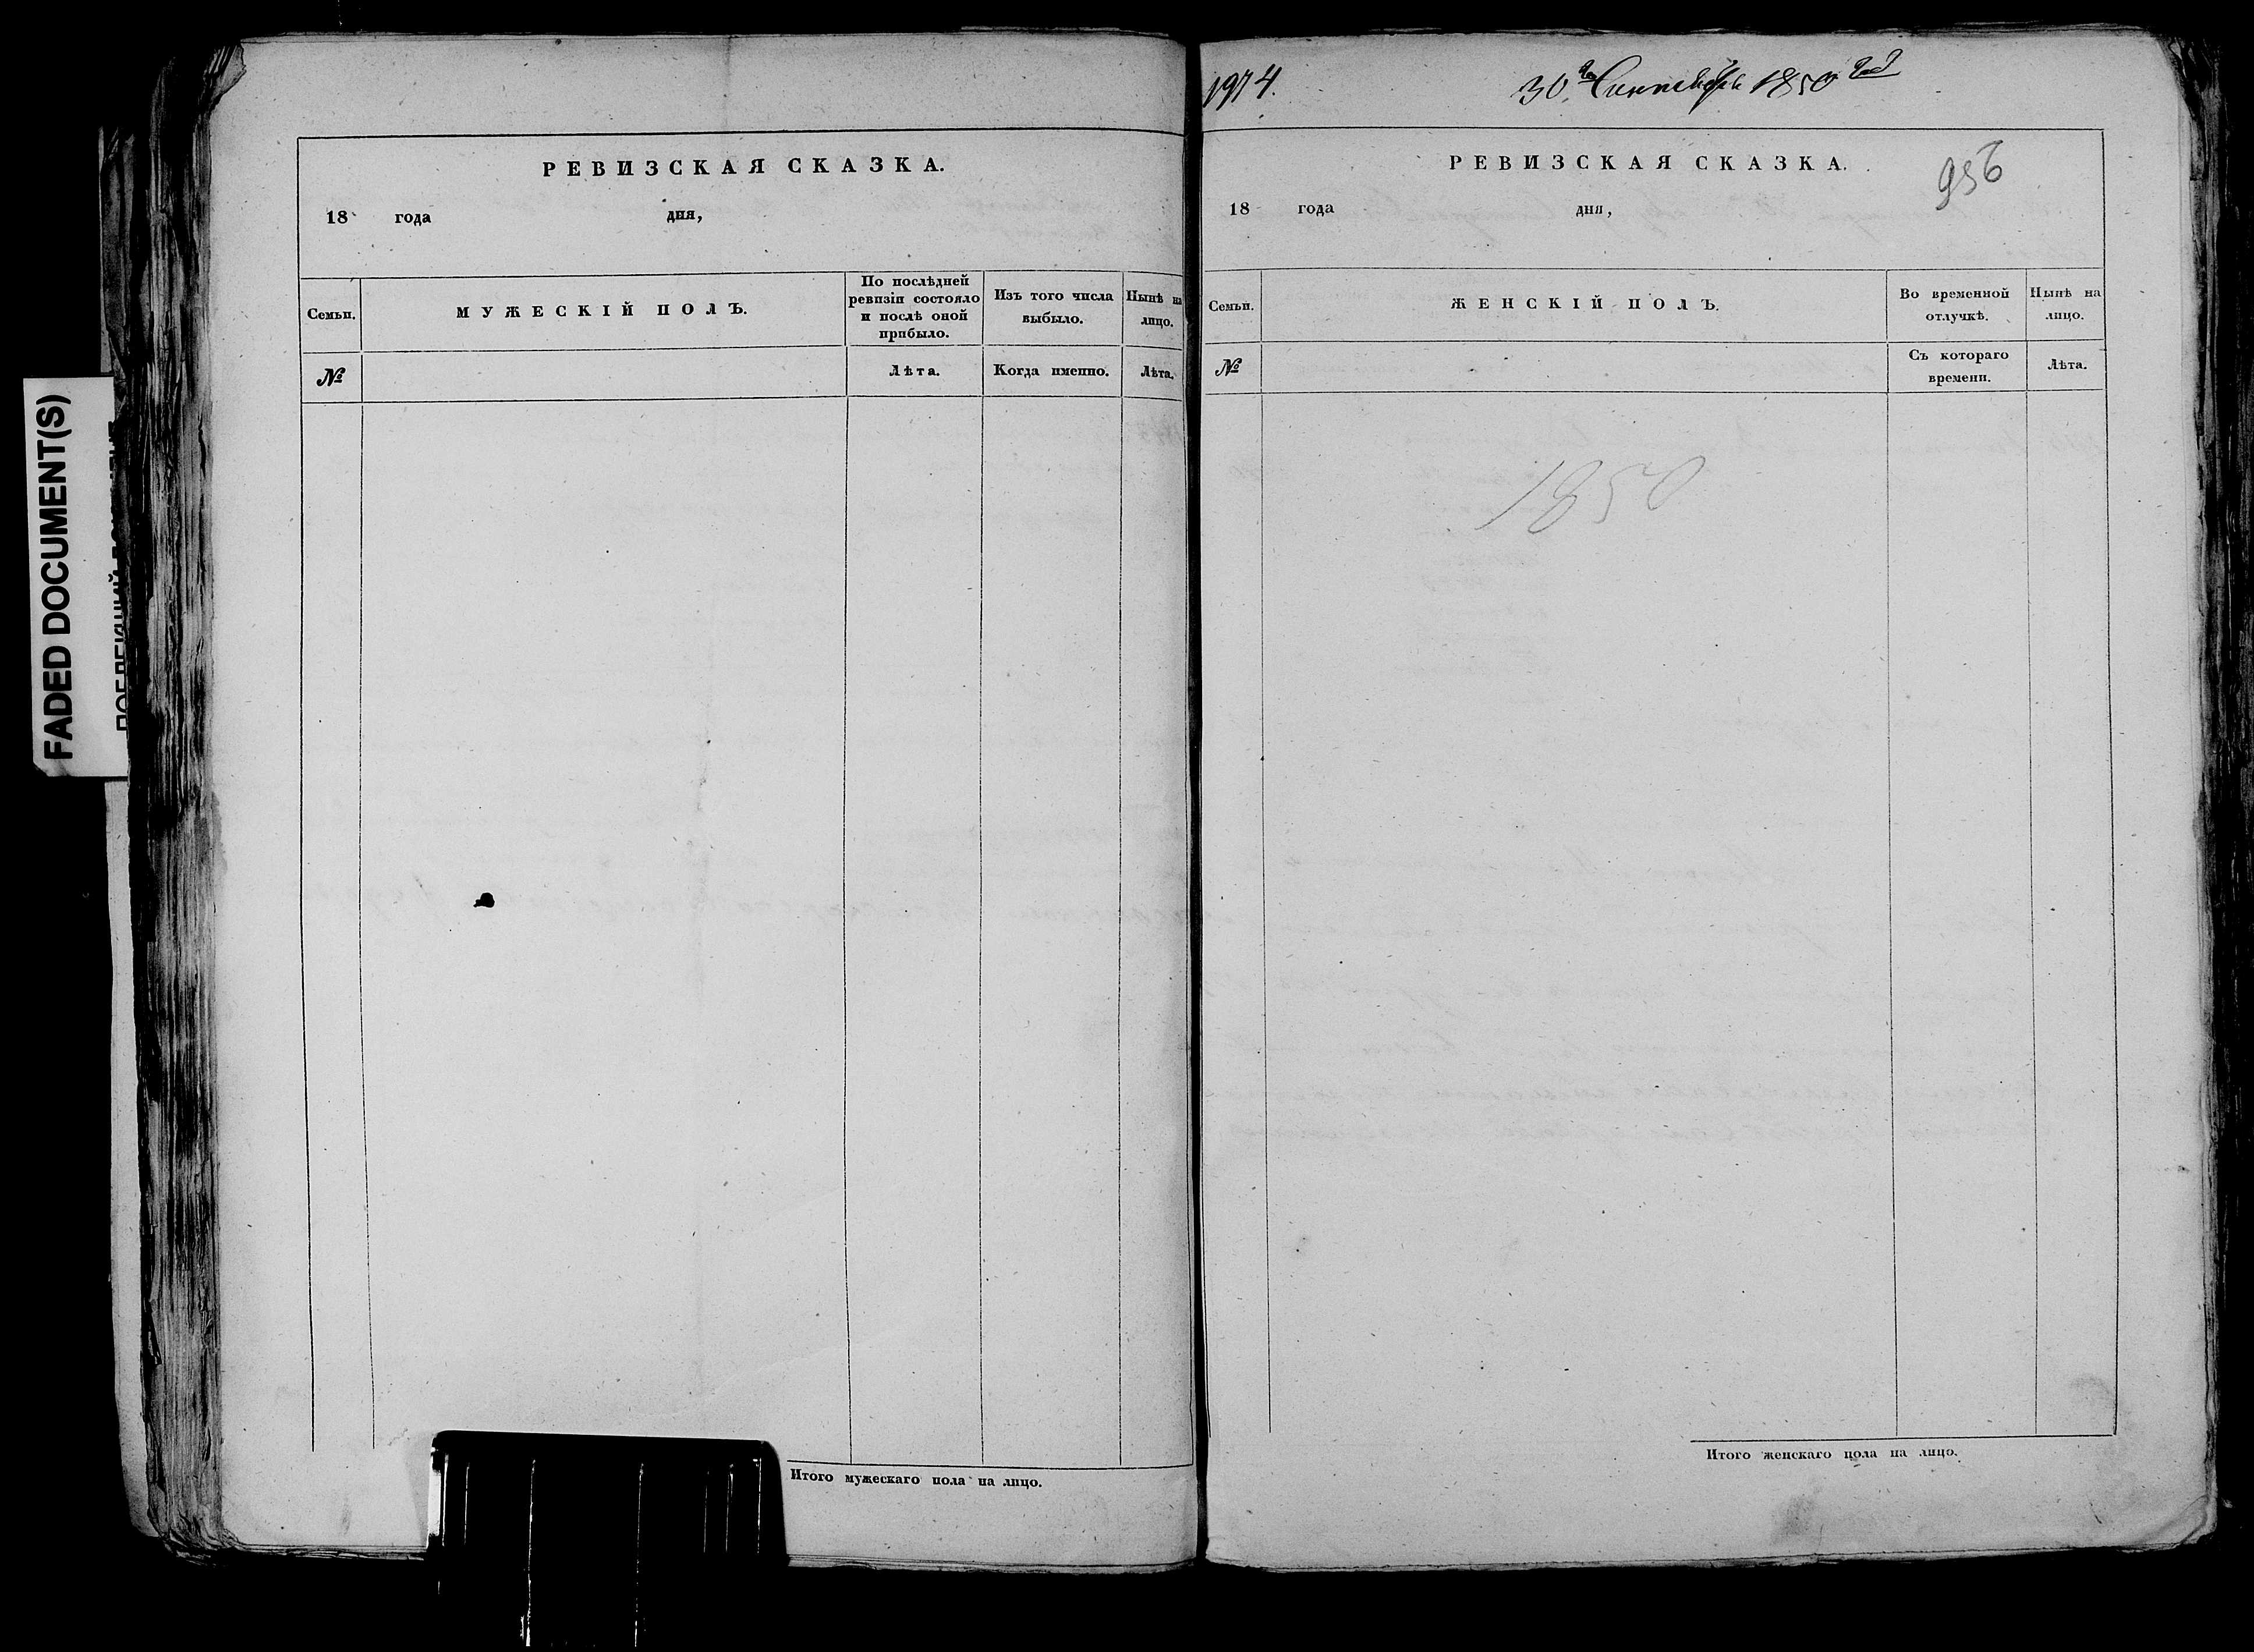 FADED DOCUMENT(S)
РЕВИЗСКАЯ СКАЗКА.
18 года дня,
Семьи.
МУЖЕСКІЙ ПОЛЪ.
По послѣдней
ревизіи состояло
и послѣ оной
прибыло.
Изъ того числа
выбыло.
Нынѣ на
лицо.
№
Лѣта.
Когда именно.
Лѣта.
Итого мужескаго пола на лицо.
1974.
30го Сентября 1850 год
РЕВИЗСКАЯ СКАЗКА.
956
18 года дня,
Семьи.
ЖЕНСКІЙ ПОЛЪ.
Во временной
отлучкѣ.
Нынѣ на
лицо.
№
Съ котораго
времени.
Лѣта.
1850
Итого женскаго пола на лицо.